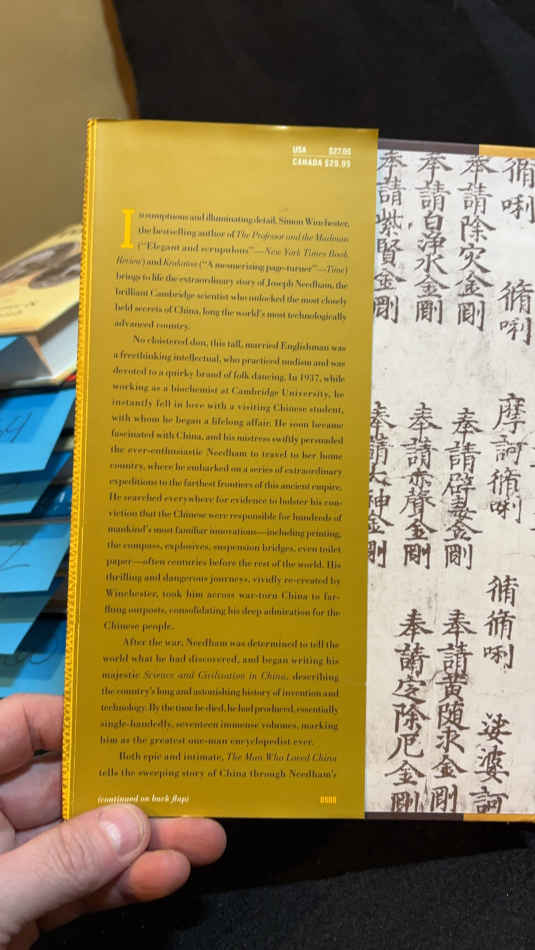 USA $27.95
CANADA $29.95
In sumptuous and illuminating detail, Simon Winchester,
the bestselling author of The Professor and the Madman
("Elegant and scrupulous"—New York Times Book
Review) and Krakatoa ("A mesmerizing page-turner"—Time)
brings to life the extraordinary story of Joseph Needham, the
brilliant Cambridge scientist who unlocked the most closely
held secrets of China, long the world's most technologically
advanced country.
No cloistered don, this tall, married Englishman was
a freethinking intellectual, who practiced nudism and was
devoted to a quirky brand of folk dancing. In 1937, while
working as a biochemist at Cambridge University, he
instantly fell in love with a visiting Chinese student,
with whom he began a lifelong affair. He soon became
fascinated with China, and his mistress swiftly persuaded
the ever-enthusiastic Needham to travel to her home
country, where he embarked on a series of extraordinary
expeditions to the farthest frontiers of this ancient empire.
He searched everywhere for evidence to bolster his con-
viction that the Chinese were responsible for hundreds of
mankind's most familiar innovations—including printing,
the compass, explosives, suspension bridges, even toilet
paper—often centuries before the rest of the world. His
thrilling and dangerous journeys, vividly re-created by
Winchester, took him across war-torn China to far-
flung outposts, consolidating his deep admiration for the
Chinese people.
After the war, Needham was determined to tell the
world what he had discovered, and began writing his
majestic Science and Civilisation in China, describing
the country's long and astonishing history of invention and
technology. By the time he died, he had produced, essentially
single-handedly, seventeen immense volumes, marking
him as the greatest one-man encyclopedist ever.
Both epic and intimate, The Man Who Loved China
tells the sweeping story of China through Needham's
(continued on back flap)
0508
脩唎
脩唎
摩訶脩唎
脩脩唎
娑婆訶
奉請除灾金剛
奉請辟毒金剛
奉請黄随求金剛
奉請白淨水金剛
奉請赤聲金剛
奉請定除厄金剛
奉請紫賢金剛
奉請大神金剛